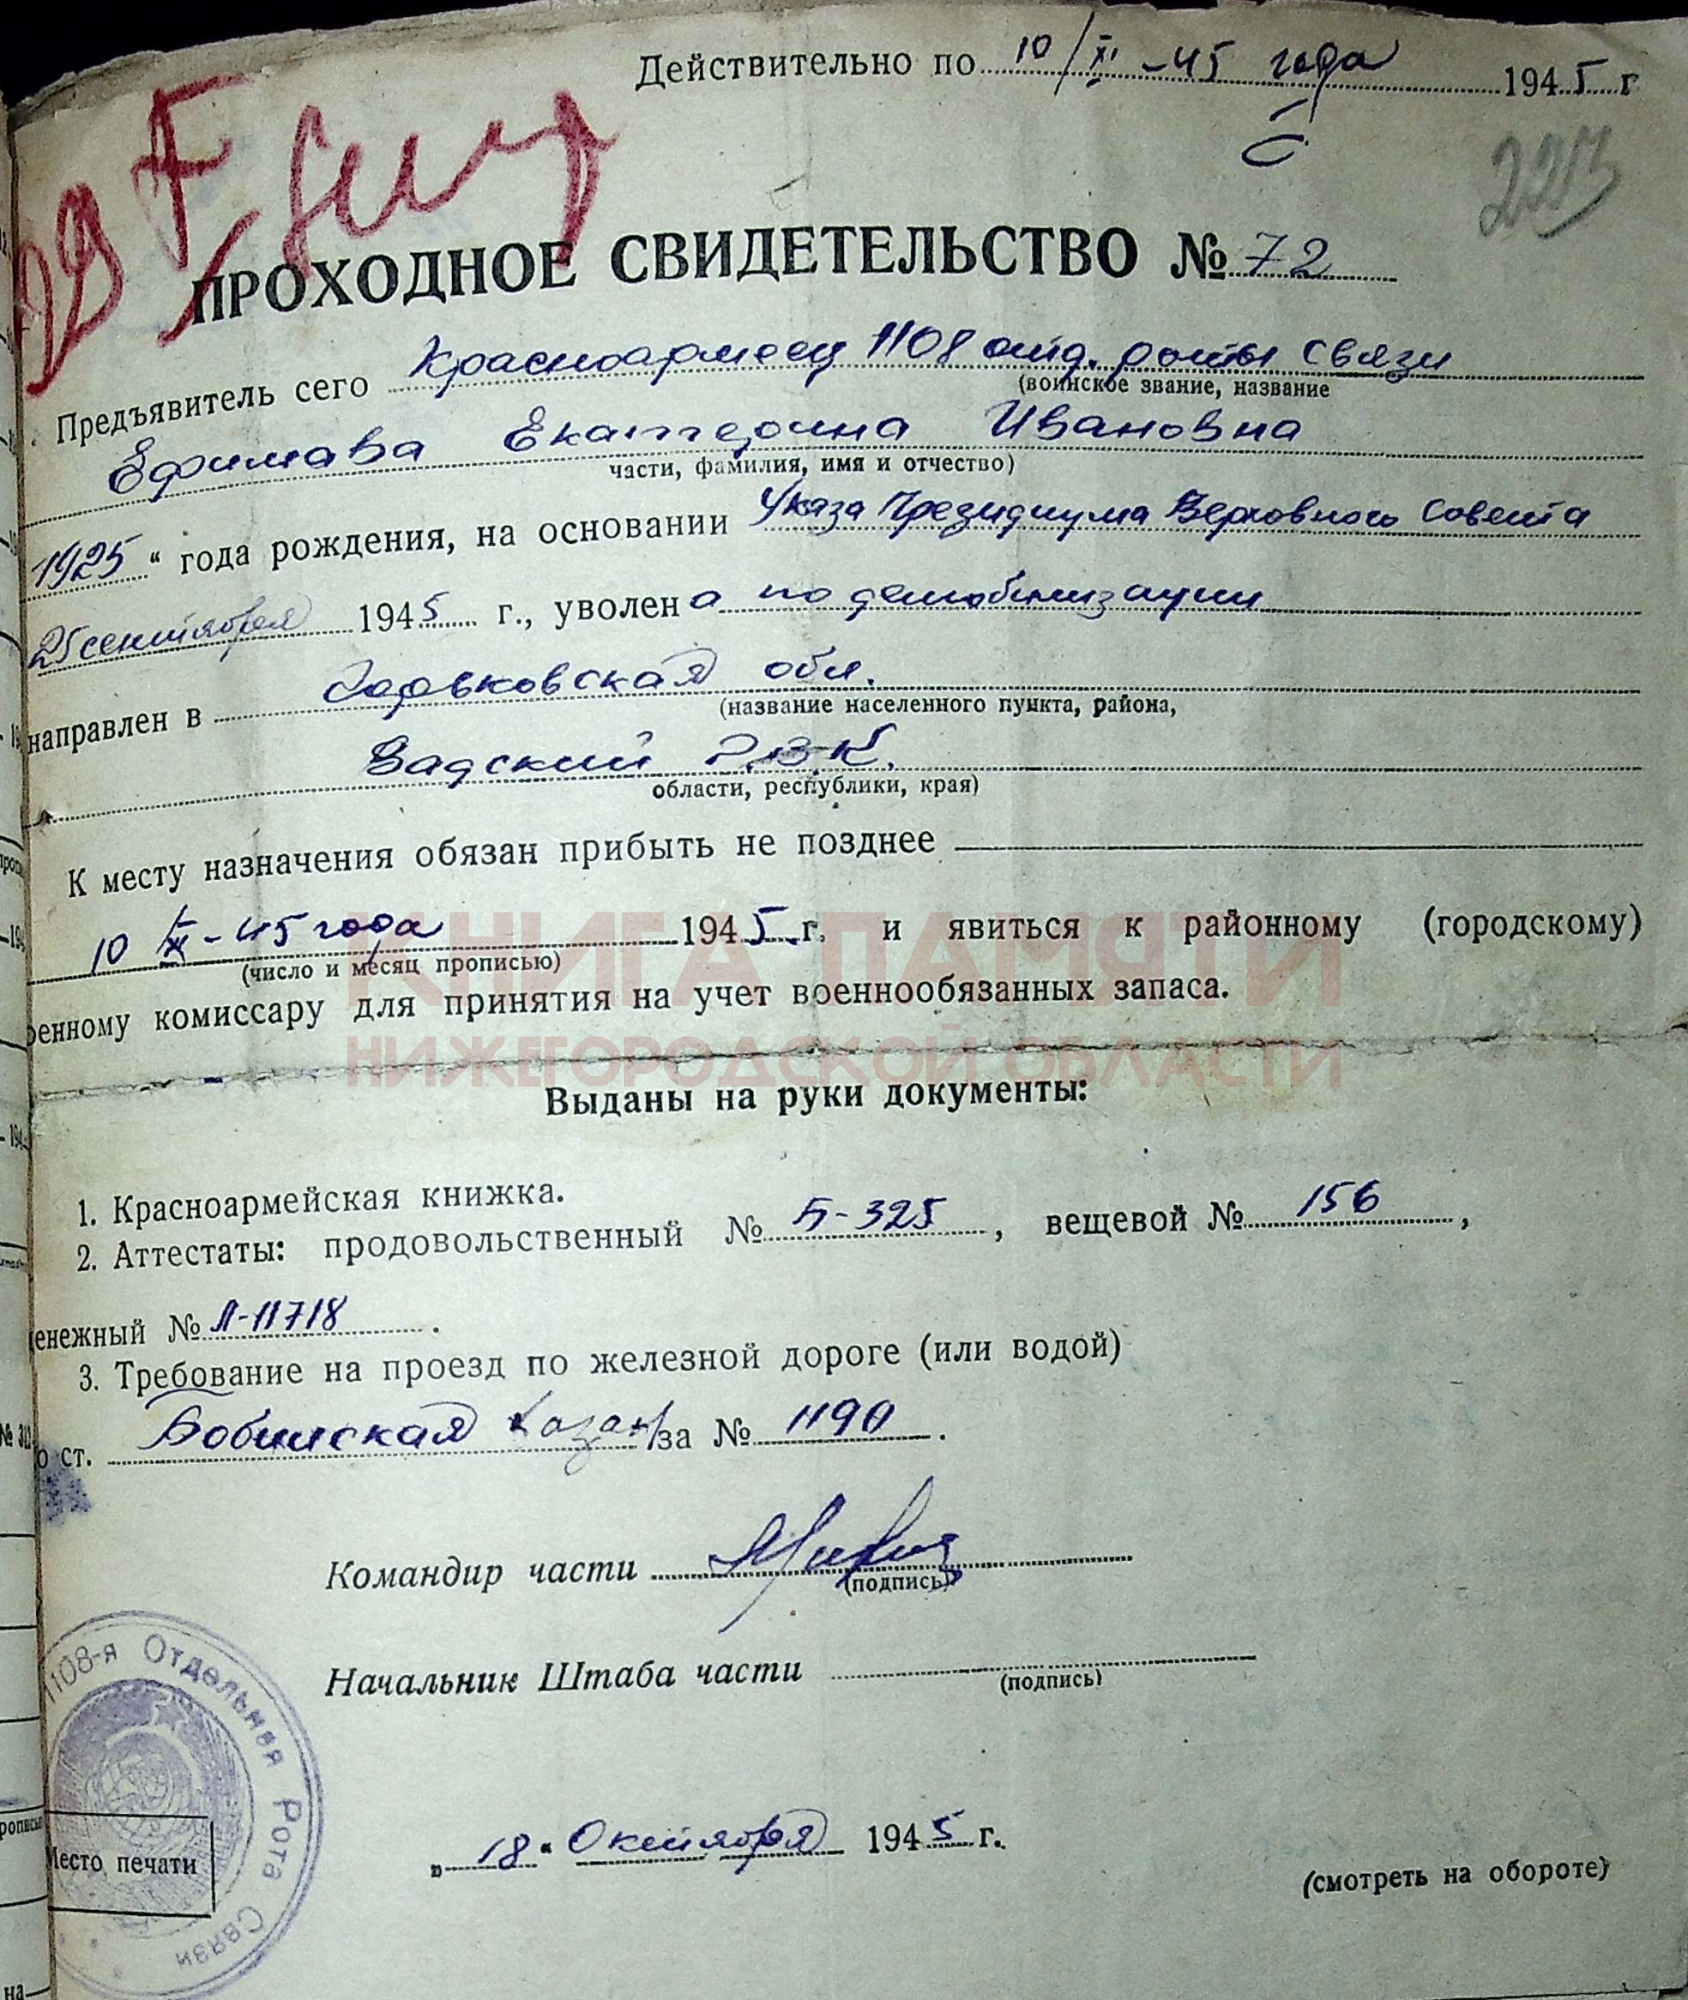 Действительно по 10/XI -45 года 1945 г
223
ПРОХОДНОЕ СВИДЕТЕЛЬСТВО № 72
Предъявитель сего Красноармеец 1108 отд. роты связи
(воинское звание, название
Ефимава Екатерина Ивановна
части, фамилия, имя и отчество)
1925 “ года рождения, на основании Указа Президиума Верховного Совета
25 сентября 1945 г., уволена по демобилизации
направлен в Горьковская обл.
(название населенного пункта, района,
Вадский Р.В.К.
области, республики, края)
К месту назначения обязан прибыть не позднее
10 XI -45 года 1945 г. и явиться к районному (городскому)
(число и месяц прописью)
КНИГА ПАМЯТИ
военному комиссару для принятия на учет военнообязанных запаса.
НИЖЕГОРОДСКОЙ ОБЛАСТИ
Выданы на руки документы:
1. Красноармейская книжка.
2. Аттестаты: продовольственный № Б-325, вещевой № 156,
енежный № Л-11718.
3. Требование на проезд по железной дороге (или водой)
о ст. Казан за № 1190.
Командир части
(подпись)
Начальник Штаба части
(подпись)
1108-я Отдельная Рота Связи
Место печати
„ 18 “ Октября 1945 г.
(смотреть на обороте)